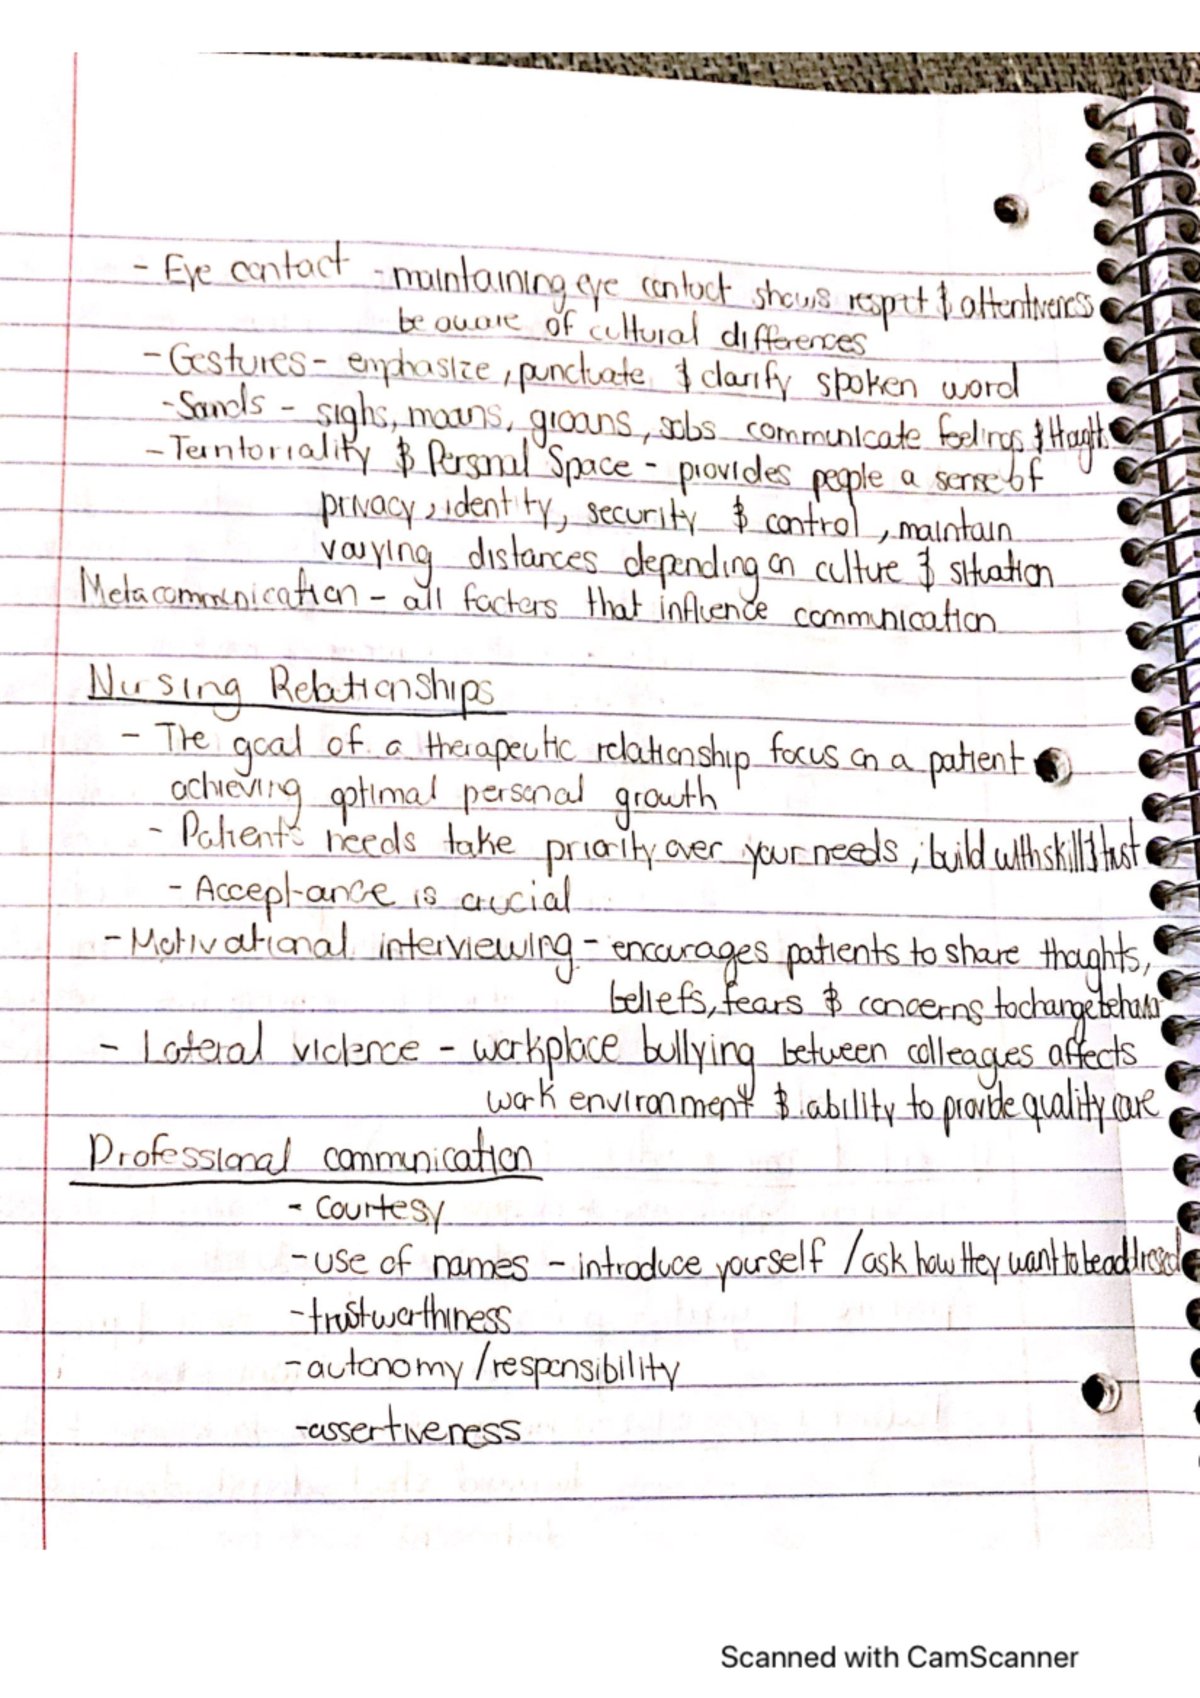 - Eye contact - maintaining eye contact shows respect & attentiveness
be aware of cultural differences
- Gestures - emphasize, punctuate & clarify spoken word
- Sounds - sighs, moans, groans, sobs communicate feelings & thoughts
- Territoriality & Personal Space - provides people a sense of
privacy, identity, security & control, maintain
varying distances depending on culture & situation
Metacommunication - all factors that influence communication
Nursing Relationships
- The goal of a therapeutic relationship focus on a patient
achieving optimal personal growth
- Patients needs take priority over your needs, build with skill & trust
- Acceptance is crucial
- Motivational interviewing - encourages patients to share thoughts,
beliefs, fears & concerns to change behavior
- Lateral violence - workplace bullying between colleagues affects
work environment & ability to provide quality care
Professional communication
- Courtesy
- use of names - introduce yourself / ask how they want to be addressed
- trustworthiness
- autonomy / responsibility
- assertiveness
Scanned with CamScanner